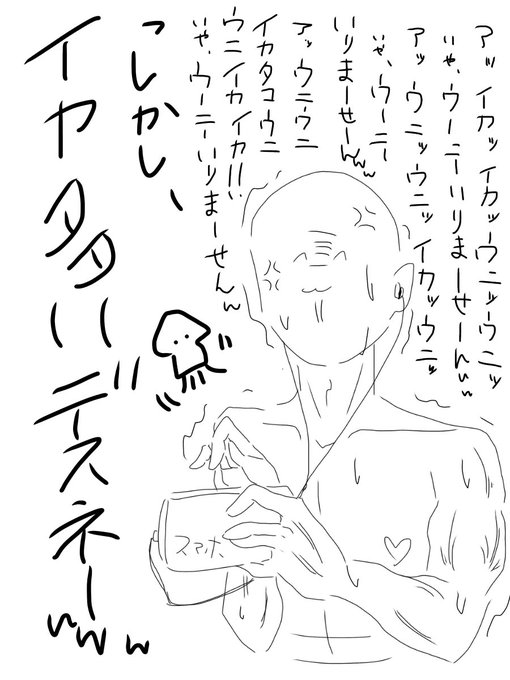 アッ イカッ イカッウニッウニッ
いゃ、ウーニーいりまーせーんww
アッ ウニッウニッ イカッウニッ
いゃ、ウーニー
いりまーせーんww
アッ ウニウニ
イカタコウニ
ウニイカイカ!!
いゃ、ウーニーいりまーせんw
っしかし、
イヤ多いデスネーwww
スマホ